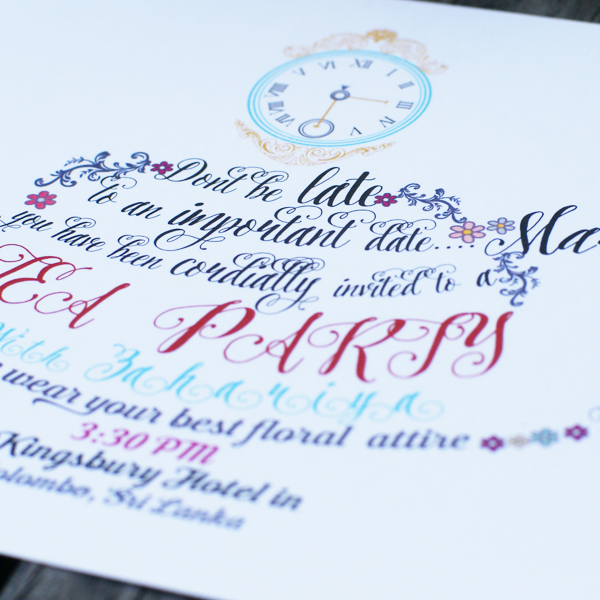 XII I II III IIII V VI VII VIII
Dont be late
to an important date....
you have been cordially invited to a
TEA PARTY
with Zahariya
wear your best floral attire
3:30 PM
Kingsbury Hotel in
Colombo, Sri Lanka